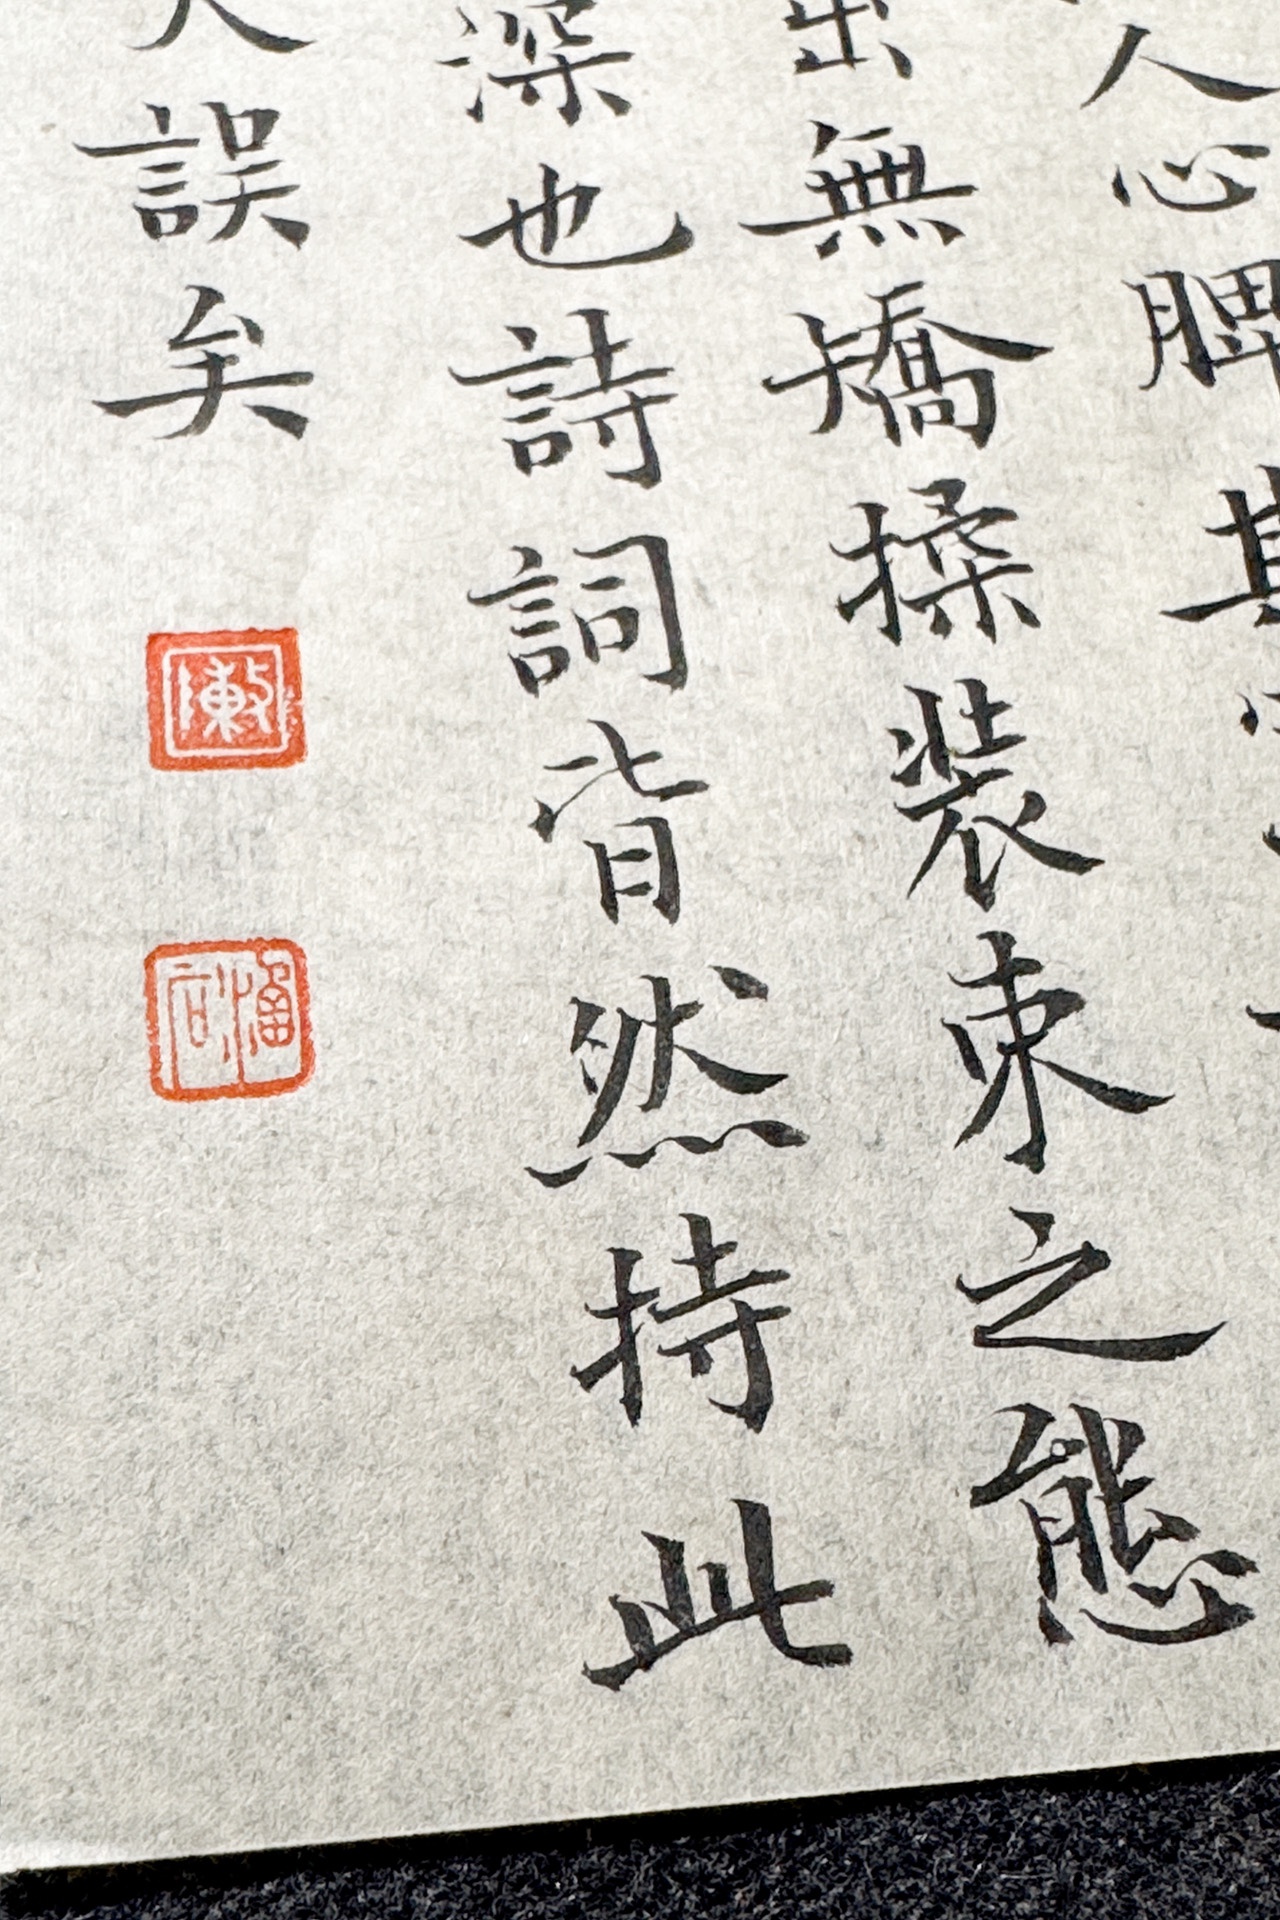 人心脾其
出無矯揉装束之態
深也詩詞皆然持此
誤矣
陳